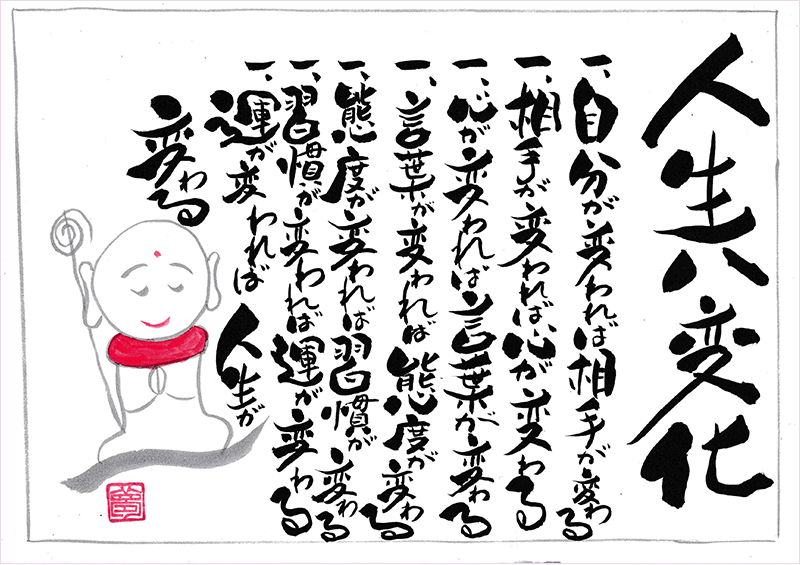 人生八変化
一、自分が変われば相手が変わる
一、相手が変われば心が変わる
一、心が変われば言葉が変わる
一、言葉が変われば態度が変わる
一、態度が変われば習慣が変わる
一、習慣が変われば運が変わる
一、運が変われば人生が
変わる